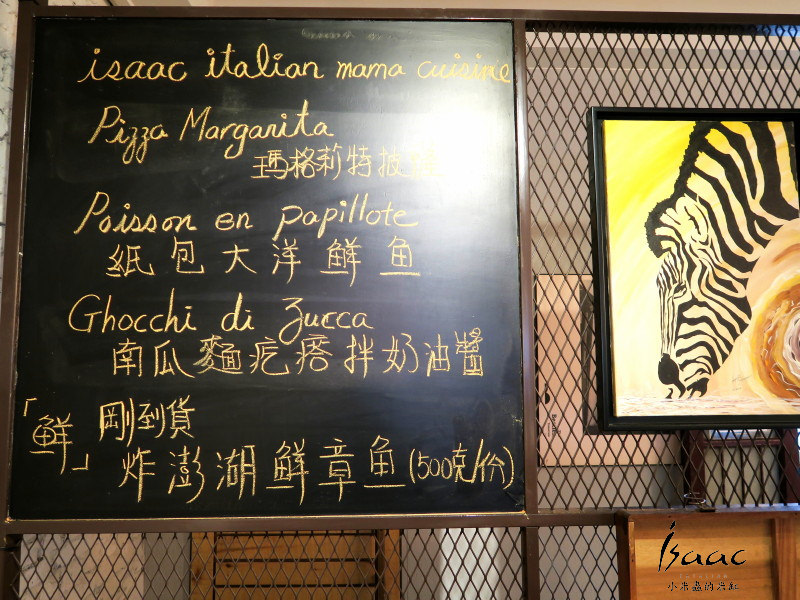 isaac italian mama cuisine
Pizza Margarita
瑪格莉特披薩
Poisson en papillote
紙包大洋鮮魚
Ghocchi di Zucca
南瓜麵疙瘩拌奶油醬
「鮮」
剛到貨
炸澎湖鮮章魚(500克/份)
isaac
小米蟲的米缸